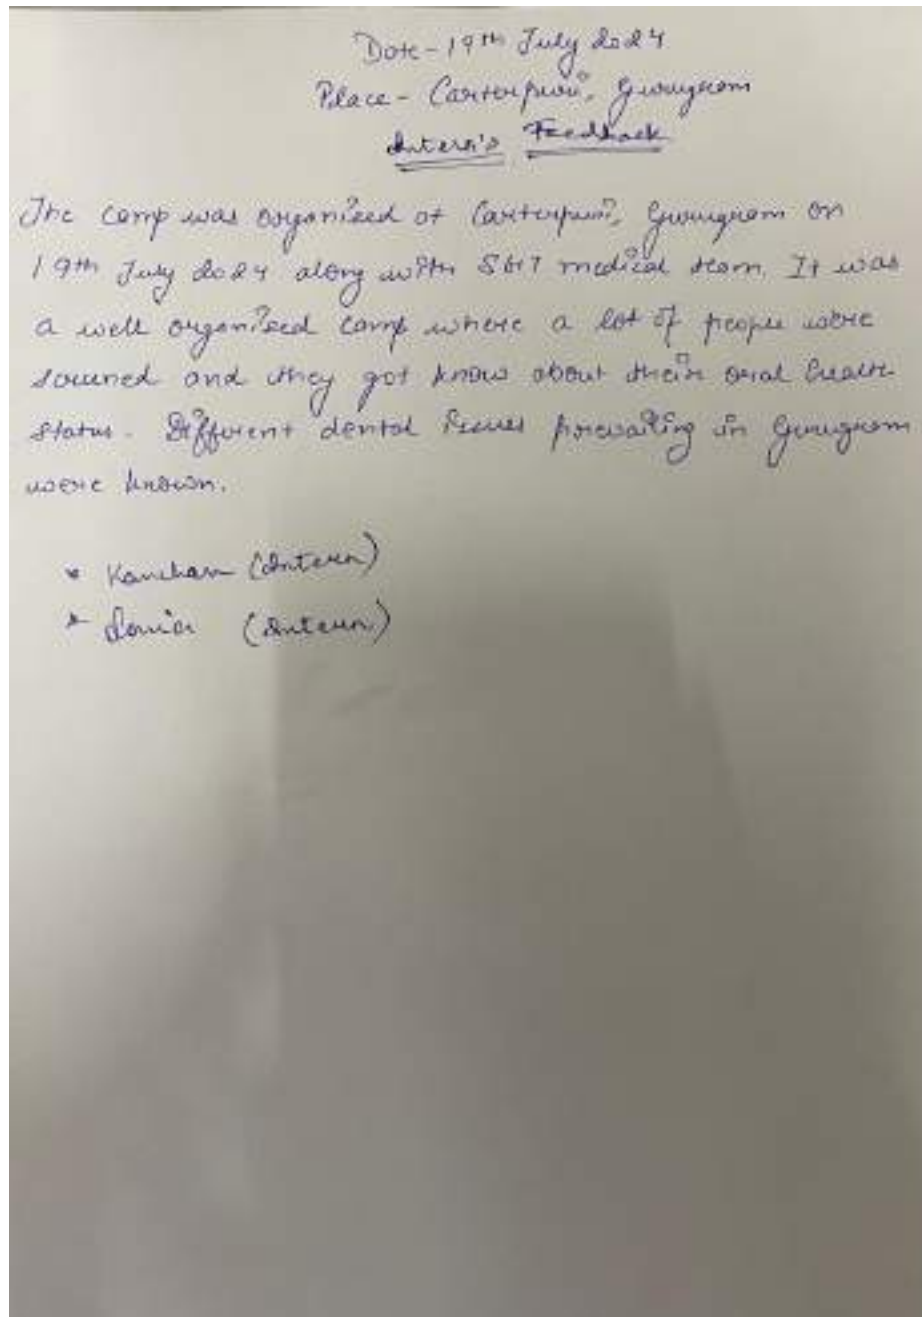 Date - 19th July 2024
Place - Carterpuri, Gurugram
Intern's Feedback
The camp was organised at Carterpuri, Gurugram on
19th July 2024 along with medical team. It was
a well organised camp where a lot of people were
screened and they got know about their oral health
status. Different dental issues prevailing in Gurugram
were known.
* Kanchan (Intern)
* (Intern)